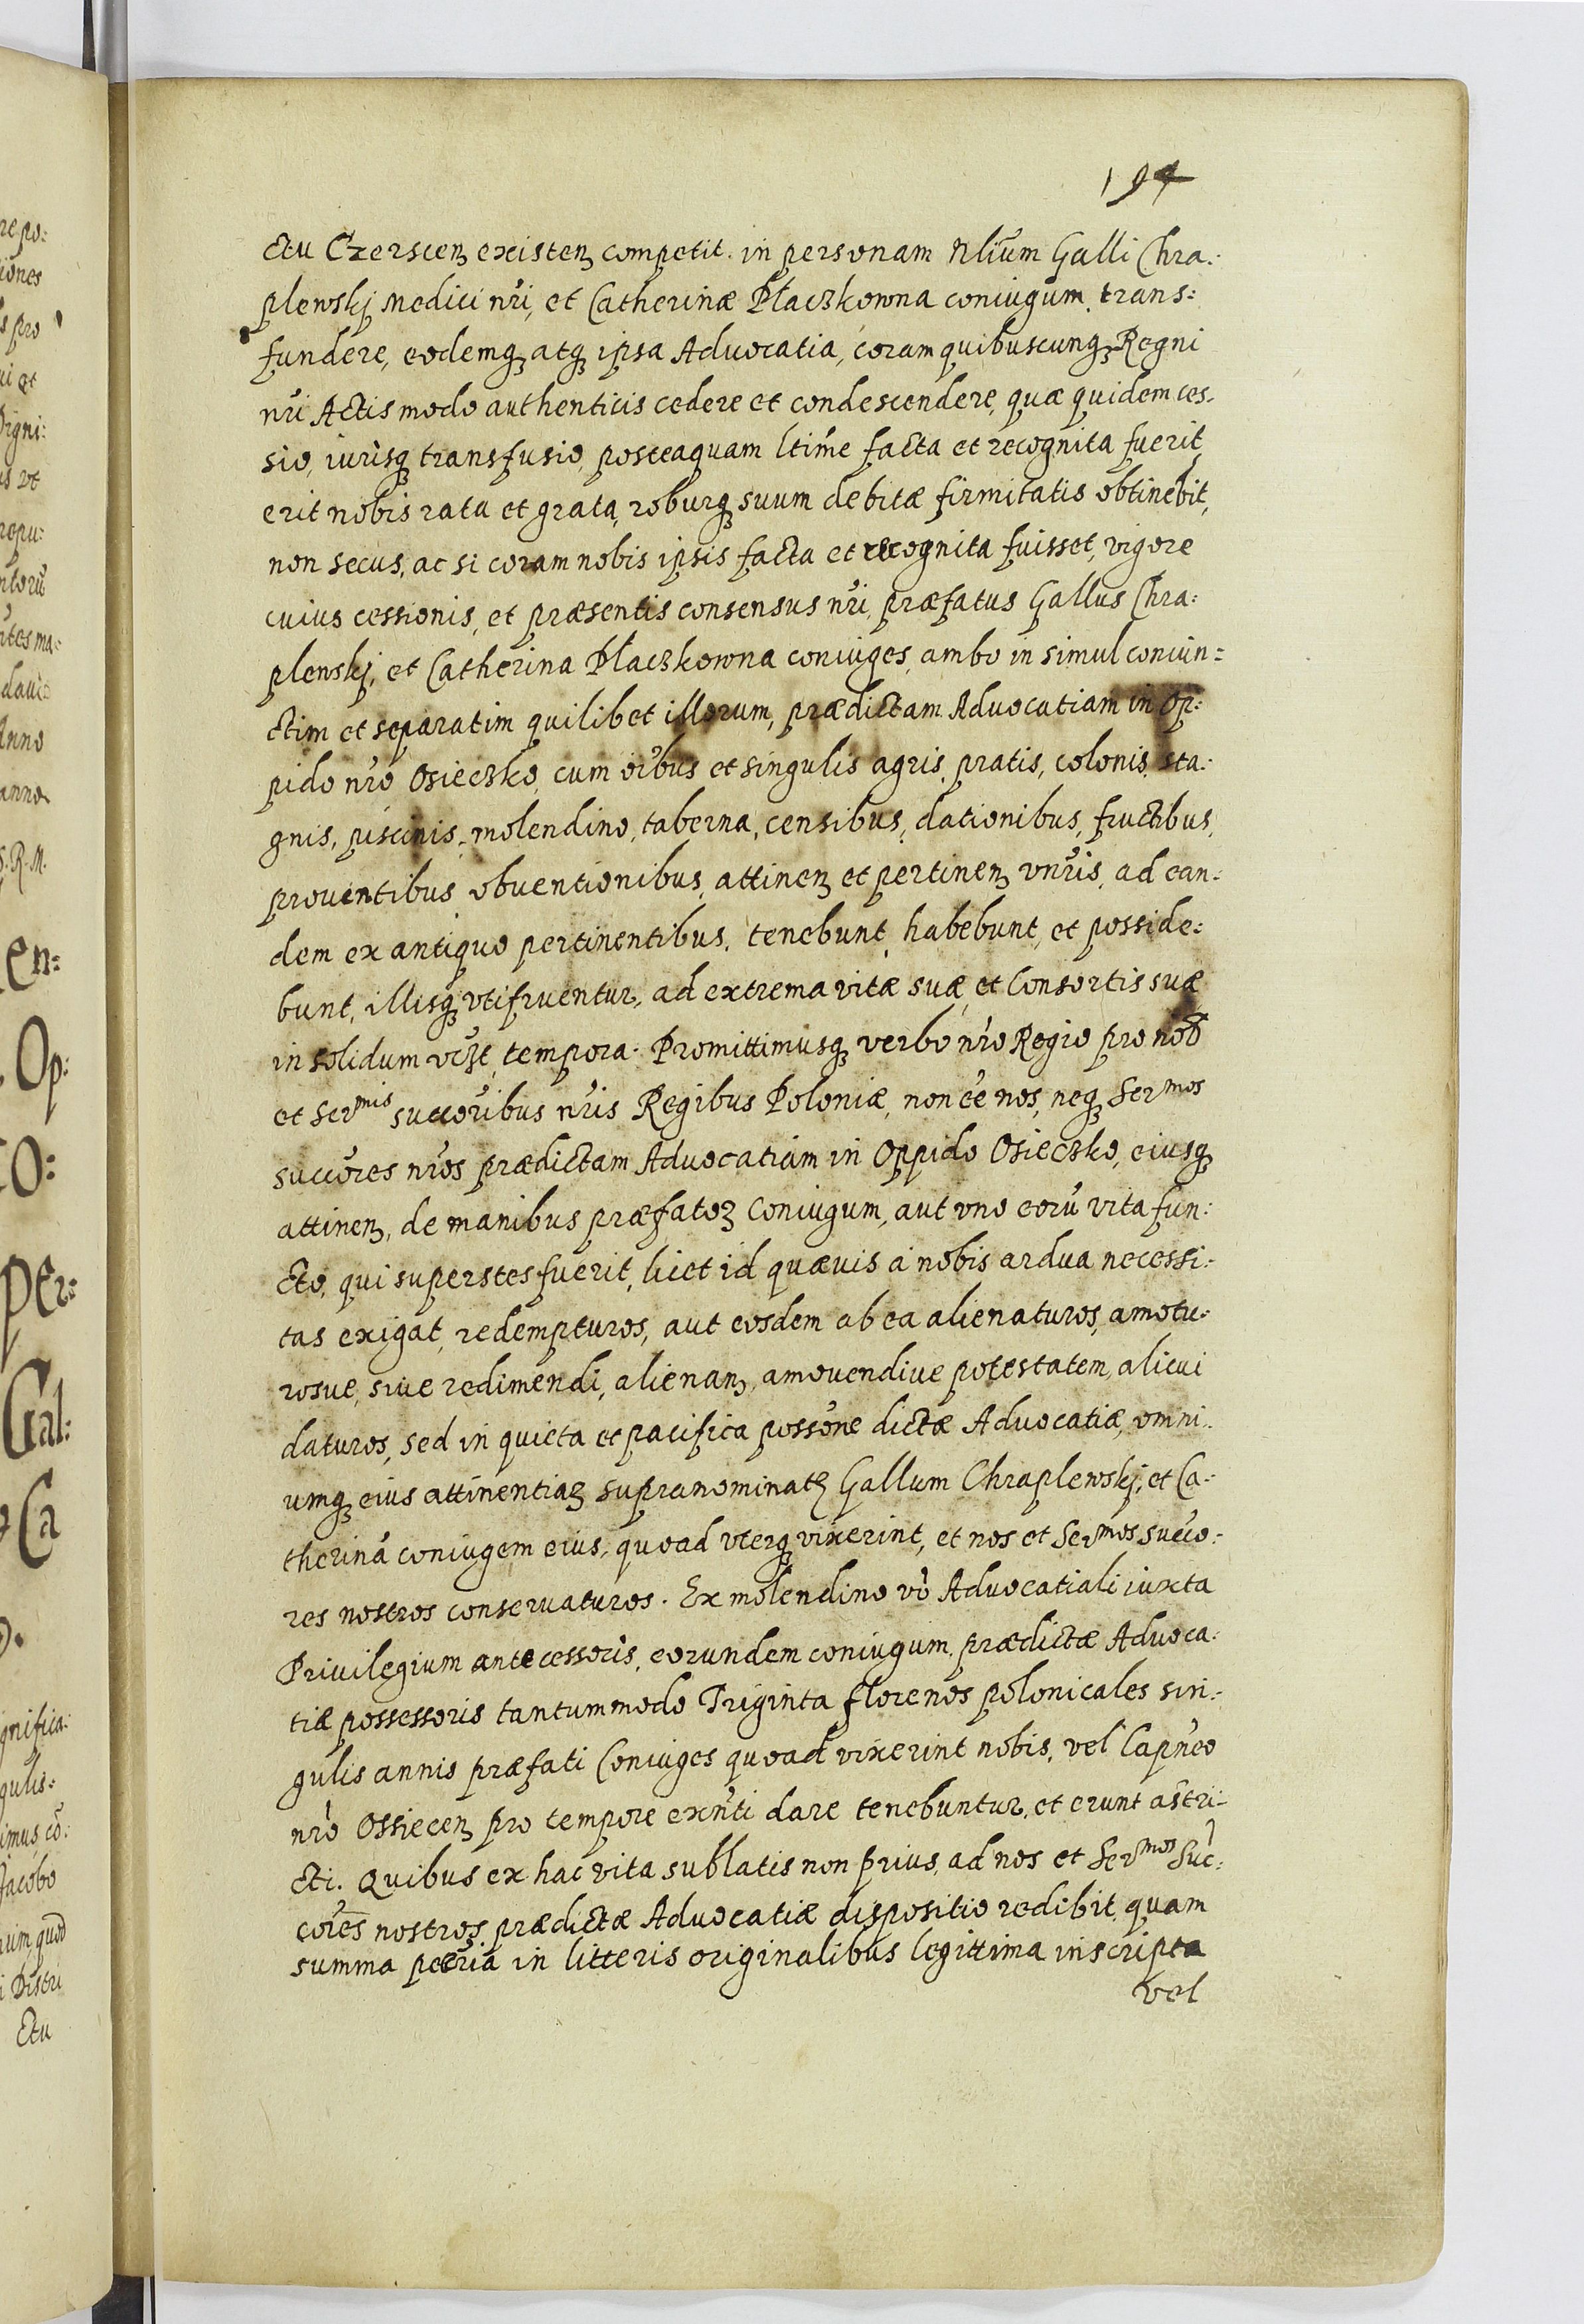 194
ctu Czerscen̄ existen̄ competit. in personam Nlium Galli Chra:
plewskj Medici nr̃i, et Catherinæ Płaczkowna coniugum, trans:
fundere, eodemqꝫ atqꝫ ipsa Aduocatia, coram quibuscunqꝫ Regni
nr̃i Actis modo authenticis cedere et condescendere, quæ quidem ces:
sio, iurisqꝫ transfusio, posteaquam ltime facta et recognita fuerit,
erit nobis rata et grata, roburqꝫ suum debitæ firmitatis obtinebit,
non secus, ac si coram nobis ipsis facta et recognita fuisset, vigore
cuius cessionis, et præsentis consensus nr̃i, præfatus Gallus Chra:
plewskj, et Catherina Płaczkowna coniuges, ambo in simul coniun:
ctim et separatim quilibet illorum, prædictam Aduocatiam in Op:
pido nr̃o Osieczko, cum oibus et singulis agris, pratis, colonis, sta:
gnis, piscinis, molendino, taberna, censibus, dationibus, fructibus,
prouentibus, obuentionibus, attinen̄ et pertinen̄ vnr̃is, ad ean:
dem ex antiquo pertinentibus, tenebunt, habebunt, et posside:
bunt, illisqꝫ vtifruentur, ad extrema vitæ suæ, et Consortis suæ
in solidum vczt, tempora. Promittimusqꝫ verbo nr̃o Regio pro nob
et Ser^mis succoribus nr̃is Regibus Poloniæ, non eē nos, neqꝫ Ser^mos
succores nr̃os prædictam Aduocatiam in Oppido Osieczko, eiusqꝫ
attinen̄, de manibus præfatoꝝ Coniugum, aut vno eorū vita fun:
cto, qui superstes fuerit, licet id quævis à nobis ardua necessi:
tas exigat, redempturos, aut eosdem ab ea alienaturos, amotu:
rosve, siue redimendi, alienan̄, amouendiue potestatem, alicui
daturos, sed in quieta et pacifica possone dictæ Aduocatiæ, omni:
umqꝫ eius attinentiaꝝ supranominatꝫ Gallum Chraplewskj, et Ca:
therinā coniugem eius, quoad vterqꝫ vixerint, et nos et Ser^mos succo:
res nostros conseruaturos. Ex molendino vò Aduocatiali iuxta
Priuilegium antecessoris, eorundem coniugum, prædictæ Aduoca:
tiæ possessoris tantummodo Triginta florenos polonicales sin:
gulis annis præfati Coniuges quoad vixerint nobis, vel Capneo
nr̃o Ossiecen̄ pro tempore exnti dare tenebuntur, et erunt astri:
cti. Quibus ex hac vita sublatis non prius, ad nos et Ser^mos Suc:
cores nostros, prædictæ Aduocatiæ dispositio redibit, quam
summa pecria in litteris originalibus legittima inscripta
vel